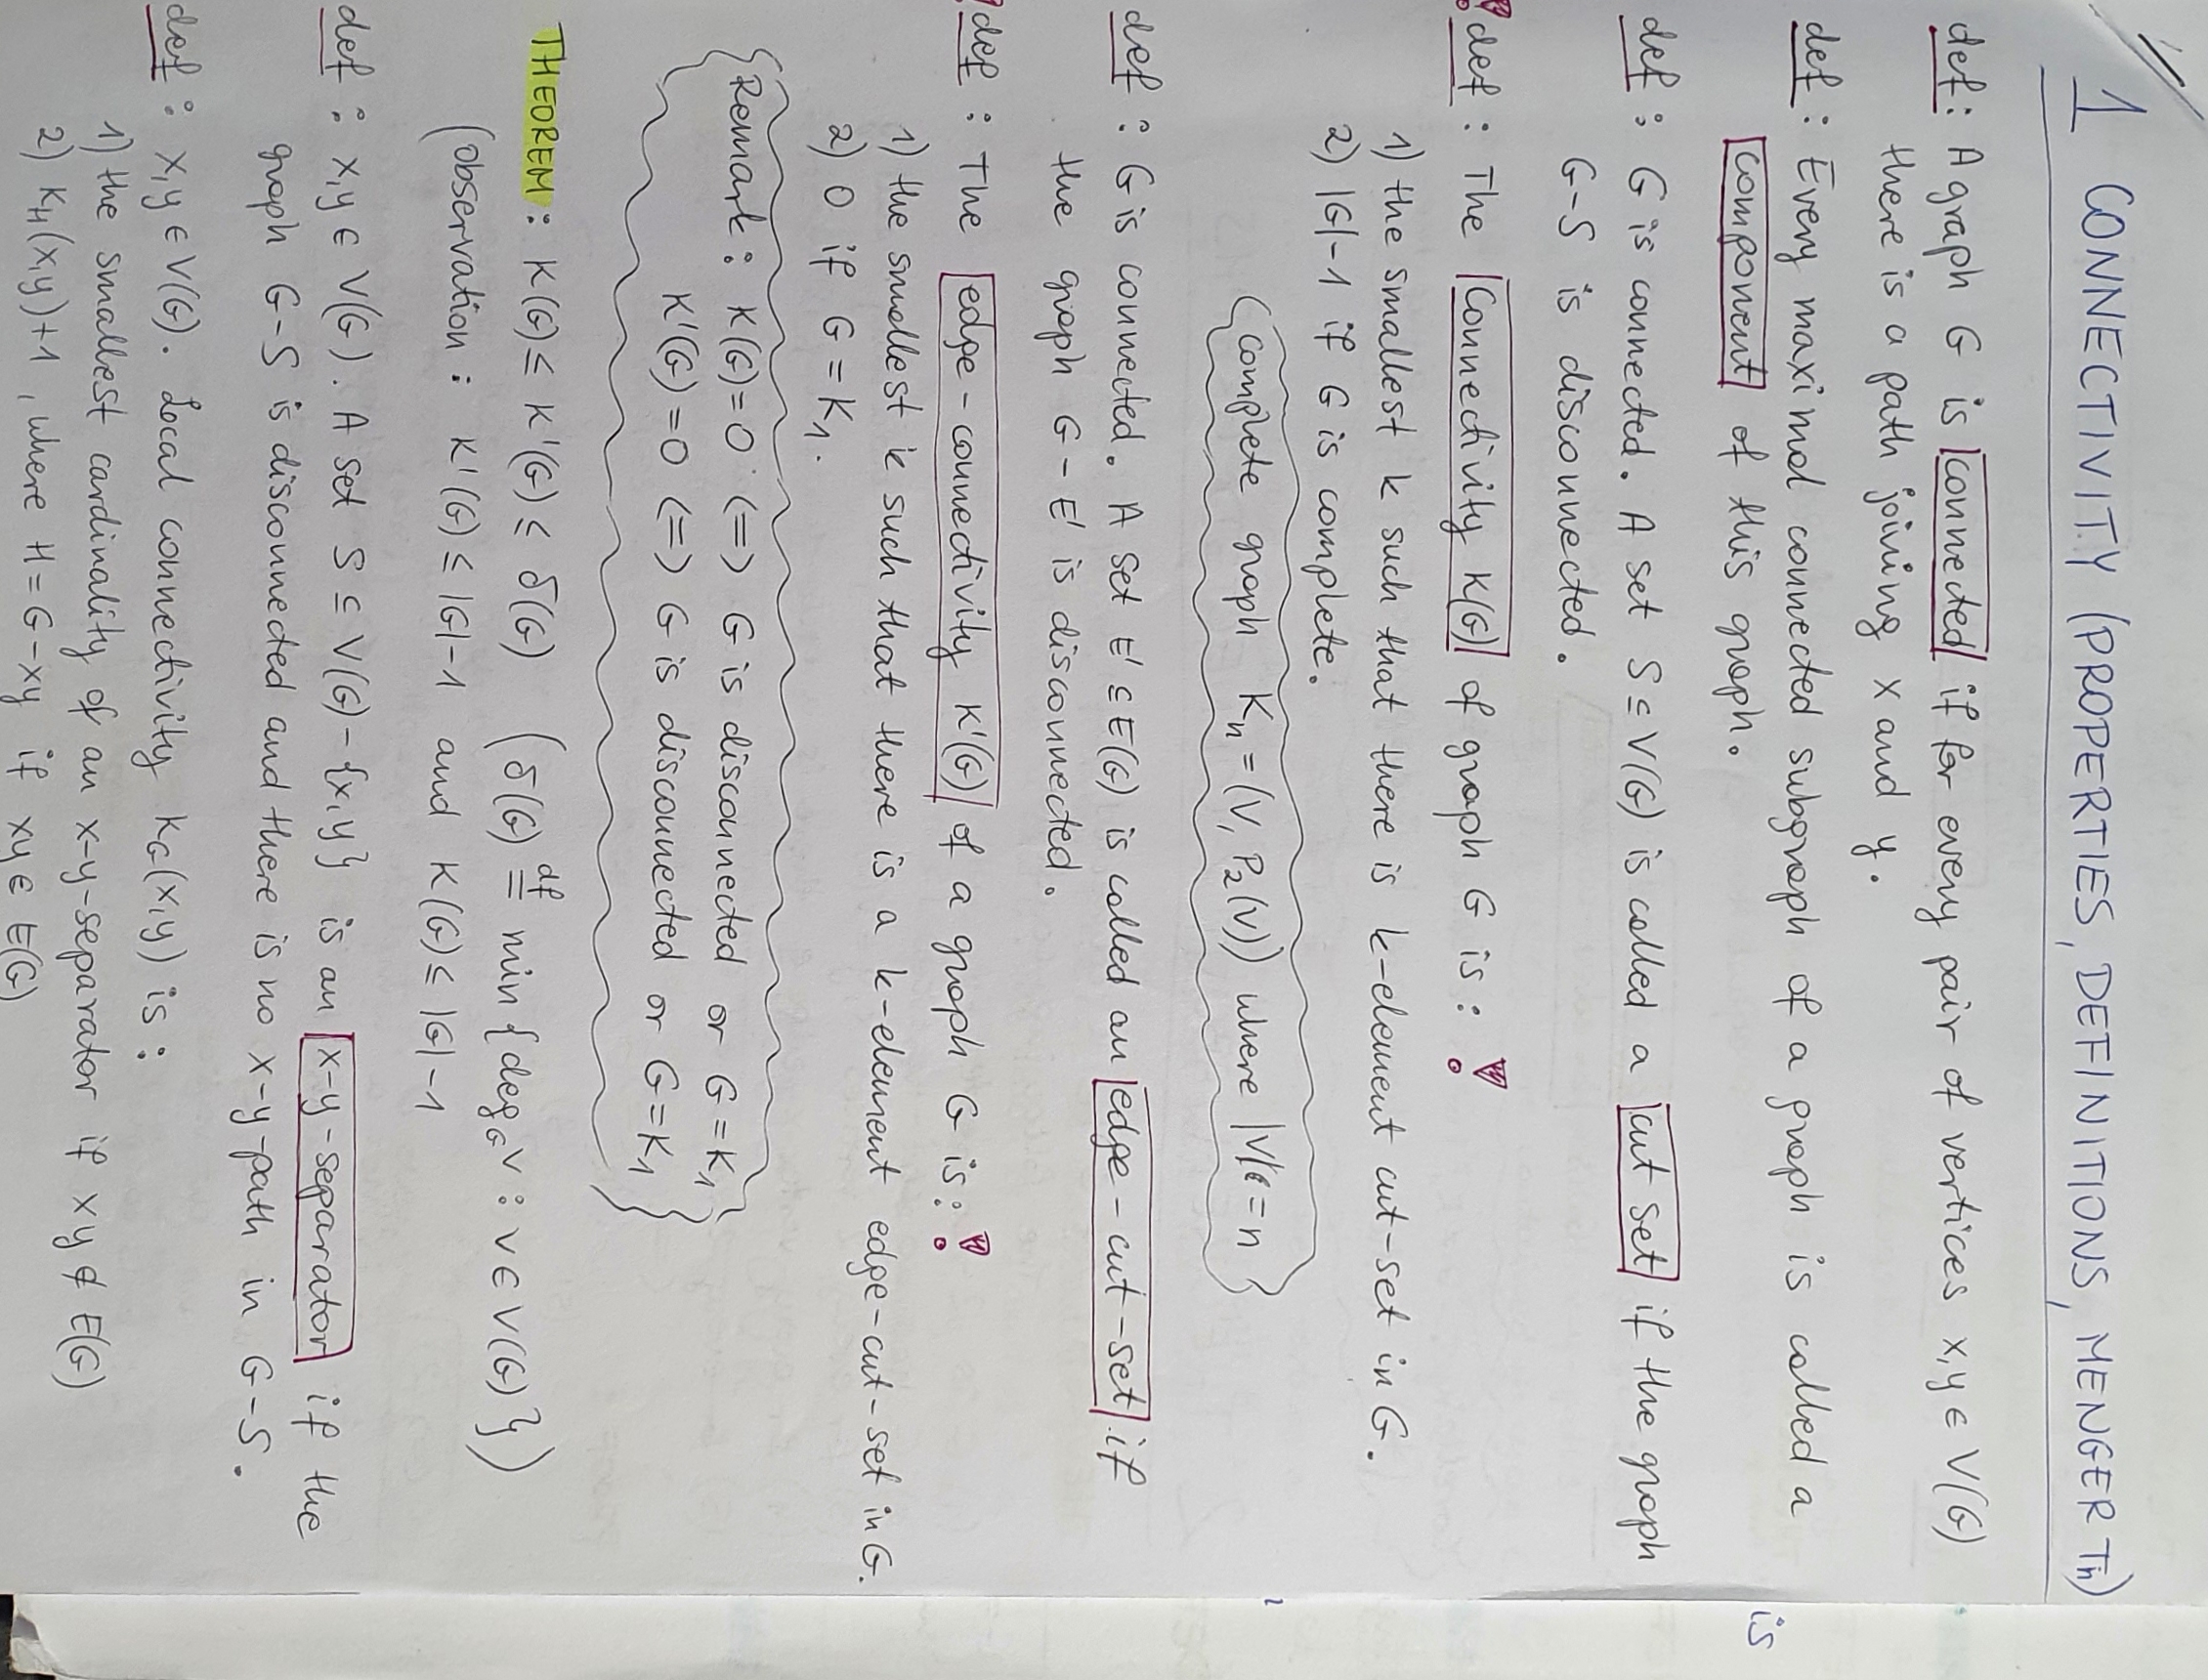 1 CONNECTIVITY (PROPERTIES, DEFINITIONS, MENGER Th)
def: A graph G is connected if for every pair of vertices x,y ∈ V(G)
there is a path joining x and y.
def: Every maximal connected subgraph of a graph is called a
component of this graph.
is
def: G is connected. A set S ⊆ V(G) is called a cut set if the graph
G-S is disconnected.
! def: The Connectivity K(G) of graph G is: !
1) the smallest k such that there is k-element cut-set in G.
2) |G|-1 if G is complete.
complete graph Kₙ = (V, P₂(V)) where |V| = n
def: G is connected. A set E' ⊆ E(G) is called an edge-cut-set if
the graph G - E' is disconnected.
! def: The edge-connectivity K'(G) of a graph G is: !
1) the smallest k such that there is a k-element edge-cut-set in G.
2) 0 if G = K₁.
Remark: K(G)=0 (=) G is disconnected or G=K₁
K'(G)=0 (=) G is disconnected or G=K₁
THEOREM: K(G) ≤ K'(G) ≤ δ(G) (δ(G) df= min {deg_G v : v ∈ V(G)})
(observation: K'(G) ≤ |G|-1 and K(G) ≤ |G|-1
def: x,y ∈ V(G). A set S ⊆ V(G)-{x,y} is an x-y-separator if the
graph G-S is disconnected and there is no x-y-path in G-S.
def: x,y ∈ V(G). Local connectivity K_G(x,y) is:
1) the smallest cardinality of an x-y-separator if xy ∉ E(G)
2) K_H(x,y)+1, where H = G-xy if xy ∈ E(G)